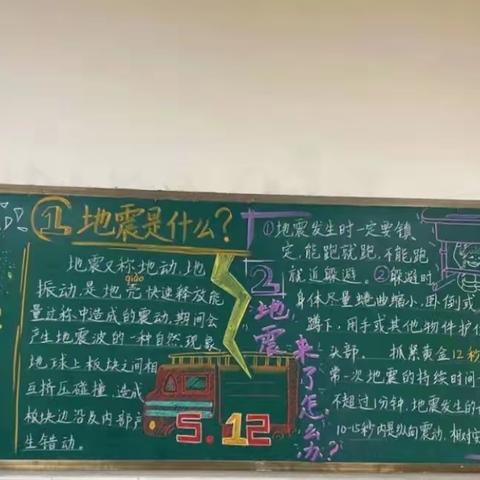 1 地震是什么?
地震又称地动、地
qiào
振动,是地壳快速释放能
量过称中造成的震动,期间会
产生地震波的一种自然现象
地球上板块之间相
互挤压碰撞,造成
板块边沿及内部产
生错动。
5.12
2 地震来了怎么办?
①地震发生时一定要镇
定,能跑就跑,不能跑
就近躲避。②躲避时,
身体尽量蜷曲缩小,
蹲下,用手或其他物件护
头部. 抓紧黄金12秒
常一次地震的持续时间
不超过1分钟,地震发生的
10-15秒内是纵向震动,相对